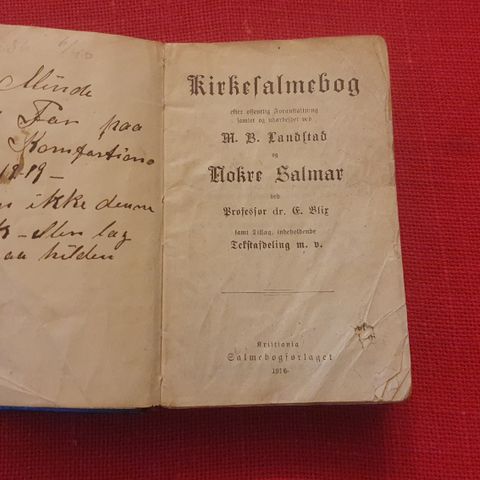 Minde
Far paa
Komfartions
1919-
ikke denne
- Men lag
hilden
Kirkesalmebog
efter offentlig Foranstaltning
samlet og udarbeidet ved
M. B. Landstad
og
Nokre Salmar
ved
Professor dr. E. Blix
samt Tillæg, indeholdende
Tekstafdeling m. v.
Kristiania
Salmebogforlaget
1916